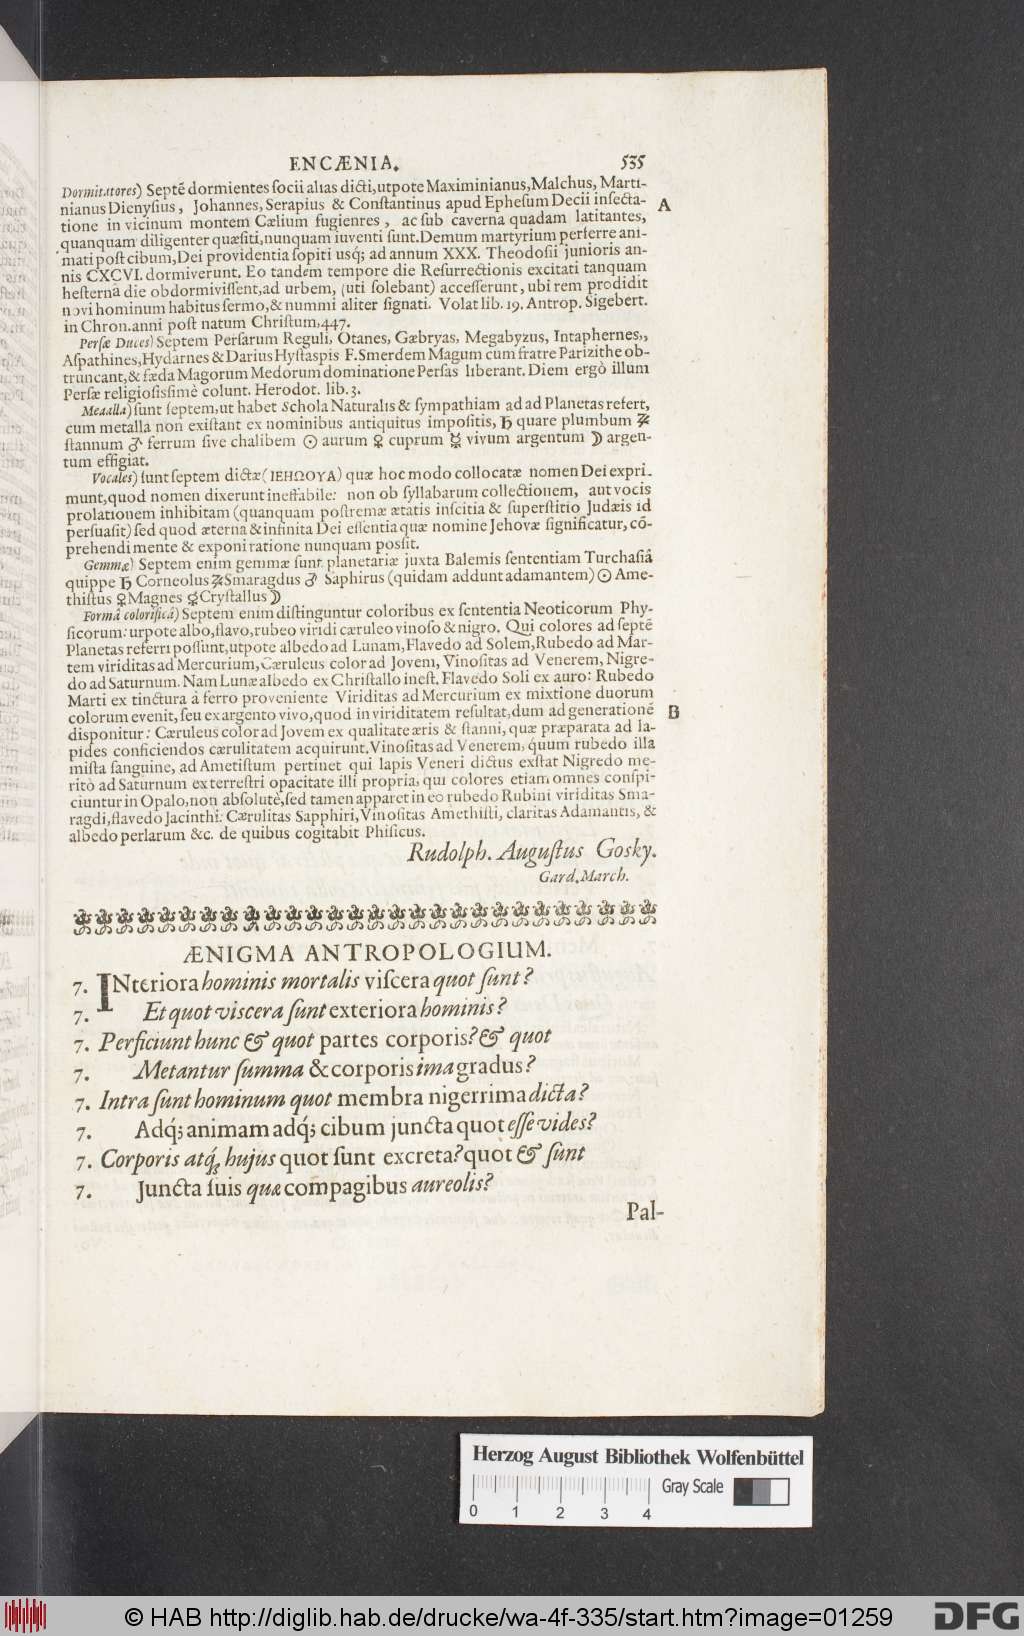 ENCÆNIA. 535
Dormitatores) Septē dormientes ſocii alias dicti,utpote Maximinianus,Malchus, Marti-
nianus Dienyſius, Johannes, Serapius & Conſtantinus apud Epheſum Decii inſecta-
A
tione in vicinum montem Cælium fugienres, ac ſub caverna quadam latitantes,
quanquam diligenter quæſiti,nunquam iuventi ſunt.Demum martyrium perferre ani-
mati poſt cibum,Dei providentia ſopiti usq; ad annum XXX. Theodoſii junioris an-
nis CXCVI. dormiverunt. Eo tandem tempore die Reſurrectionis excitati tanquam
heſternâ die obdormiviſſent,ad urbem, (uti ſolebant) acceſſerunt, ubi rem prodidit
novi hominum habitus ſermo,& nummi aliter ſignati. Volat lib. 19. Antrop. Sigebert.
in Chron.anni poſt natum Chriſtum,447.
Perſæ Duces) Septem Perſarum Reguli, Otanes, Gæbryas, Megabyzus, Intaphernes,,
Aſpathines,Hydarnes & Darius Hyſtaspis F.Smerdem Magum cum fratre Parizithe ob-
truncant,& fæda Magorum Medorum dominatione Perſas liberant. Diem ergò illum
Perſæ religioſisſimè colunt. Herodot. lib.3.
Meaalla) ſunt ſeptem,ut habet Schola Naturalis & ſympathiam ad ad Planetas refert,
cum metalla non exiſtant ex nominibus antiquitus impoſitis, ♄ quare plumbum ♃
ſtannum ♂ ferrum ſive chalibem ☉ aurum ♀ cuprum ☿ vivum argentum ☽ argen-
tum effigiat.
Vocales) ſunt ſeptem dictæ (ΙΕΗΩΟΥΑ) quæ hoc modo collocatæ nomen Dei expri-
munt,quod nomen dixerunt ineffabile: non ob ſyllabarum collectionem, aut vocis
prolationem inhibitam (quanquam poſtremæ ætatis inſcitia & ſuperſtitio Judæis id
perſuaſit) ſed quod æterna & infinita Dei eſſentia quæ nomine Jehovæ ſignificatur, cō-
prehendi mente & exponi ratione nunquam posſit.
Gemmæ) Septem enim gemmæ ſunt planetariæ juxta Balemis ſententiam Turchaſiâ
quippe ♄ Corneolus ♃ Smaragdus ♂ Saphirus (quidam addunt adamantem) ☉ Ame-
thiſtus ♀ Magnes ☿ Cryſtallus ☽
Formâ colorificâ) Septem enim diſtinguntur coloribus ex ſententia Neoticorum Phy-
ſicorum: urpote albo,flavo,rubeo viridi cæruleo vinoſo & nigro. Qui colores ad ſeptē
Planetas referri poſſunt,utpote albedo ad Lunam,Flavedo ad Solem,Rubedo ad Mar-
tem viriditas ad Mercurium,Cæruleus color ad Jovem, Vinoſitas ad Venerem, Nigre-
do ad Saturnum. Nam Lunæ albedo ex Chriſtallo ineſt. Flavedo Soli ex auro: Rubedo
Marti ex tinctura à ferro proveniente Viriditas ad Mercurium ex mixtione duorum
colorum evenit, ſeu ex argento vivo,quod in viriditatem reſultat,dum ad generationē
B
disponitur: Cæruleus color ad Jovem ex qualitate æris & ſtanni, quæ præparata ad la-
pides conficiendos cærulitatem acquirunt.Vinoſitas ad Venerem, quum rubedo illa
miſta ſanguine, ad Ametiſtum pertinet qui lapis Veneri dictus exſtat Nigredo me-
ritò ad Saturnum ex terreſtri opacitate illi propria, qui colores etiam omnes conſpi-
ciuntur in Opalo,non abſolutè,ſed tamen apparet in eo rubedo Rubini viriditas Sma-
ragdi,flavedo Jacinthi: Cærulitas Sapphiri,Vinoſitas Amethiſti, claritas Adamantis, &
albedo perlarum &c. de quibus cogitabit Phiſicus.
Rudolph. Auguſtus Gosky.
Gard.March.
ÆNIGMA ANTROPOLOGIUM.
7. INteriora hominis mortalis viſcera quot ſunt?
7. Et quot viscera ſunt exteriora hominis?
7. Perficiunt hunc & quot partes corporis? & quot
7. Metantur ſumma & corporis ima gradus?
7. Intra ſunt hominum quot membra nigerrima dicta?
7. Adq́; animam adq́; cibum juncta quot eſſe vides?
7. Corporis atq́; hujus quot ſunt excreta? quot & ſunt
7. Juncta ſuis quæ compagibus aureolis?
Pal-
Herzog August Bibliothek Wolfenbüttel
Gray Scale
0 1 2 3 4
© HAB http://diglib.hab.de/drucke/wa-4f-335/start.htm?image=01259
DFG